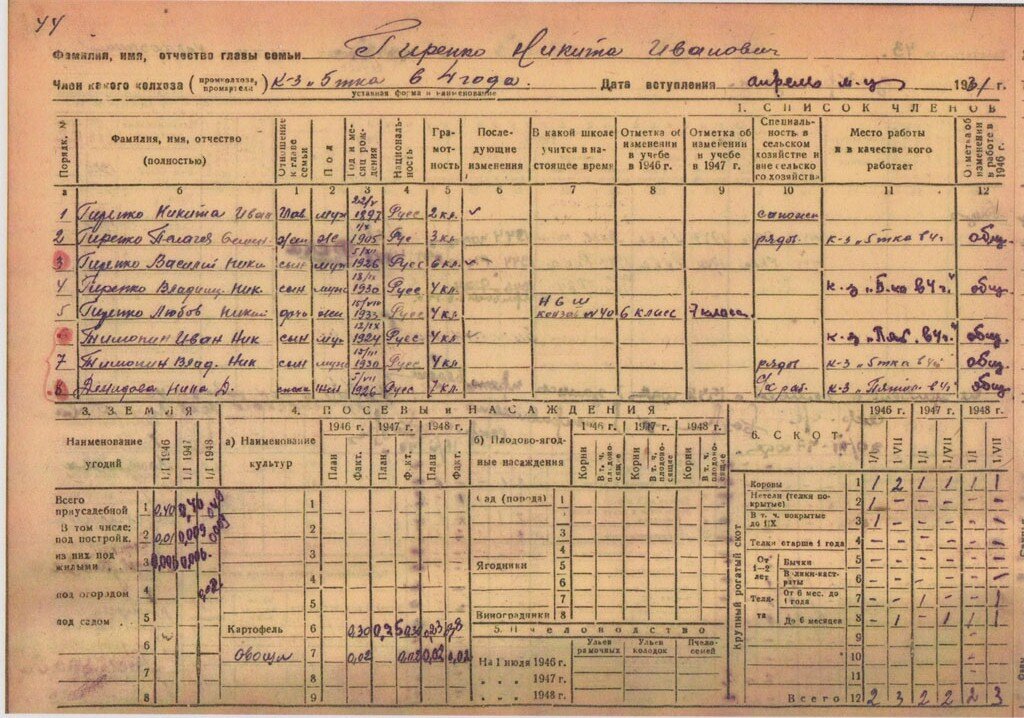 44
Фамилия, имя, отчество главы семьи Пиренко Никита Иванович
Член какого колхоза (промколхоза, промартели) к-з „5тка в 4 года.
уставная форма и наименование
Дата вступления апрель м-ц 1931 г.
1. СПИСОК ЧЛЕНОВ
Порядк. №
Фамилия, имя, отчество (полностью)
Отношение к главе семьи
Пол
Год и месяц рождения
Национальность
Грамотность
Последующие изменения
В какой школе учится в настоящее время
Отметка об изменении в учебе в 1946 г.
Отметка об изменении в учебе в 1947 г.
Специальность в сельском хозяйстве и вне сельского хозяйств
Место работы и в качестве кого работает
Отметка об изменении в работе в 1946 г.
а б 1 2 3 4 5 6 7 8 9 10 11 12
1 Пиренко Никита Иван Глав муж 22/V 1897 Русс 2 кл. сапожн
2 Пиренко Пелагея жен 1905 Рус 3 кл. рядов. к-з 5тка в 4 г
3 Пиренко Василий Ники сын муж 1926 Русс 6 кл.
4 Пиренко Владим. Ник. сын муж 1930 Русс 4 кл. к-з „5-ка в 4 г."
5 Пиренко Любовь Никит дочь жен 1933 Русс 4 кл НСШ №40 6 класс 7 класс
Тимонин Иван Ник сын муж 12/IX 1924 Русс 4 кл к-з „Пят. в 4 г."
7 Тимонин Влад. Ник сын муж 1930 Русс 4 кл рядов к-з 5тка в 4 г
8 Демидова Нина Д. жен 5/VII 1926 Русс 7 кл. с/х раб. к-з Пятил. в 4 г
3. ЗЕМЛЯ
Наименование угодий
1/I 1946 1/I 1947 1/I 1948
Всего приусадебной 1 0,40 0,40 0,40
В том числе; под постройк. 2 0,01 0,009 0,009
из них под жилыми 3 0,006 0,006
под огородом 4
под садом 5
6
7
8
4. ПОСЕВЫ и НАСАЖДЕНИЯ
а) Наименование культур
1946 г. 1947 г. 1948 г.
План Факт. План Факт. План Факт.
1
2
3
4
5
Картофель 6 0,30 0,25 0,30 0,23
Овощи 7 0,02 0,02 0,02 0,02
8
9
б) Плодово-ягодные насаждения
1946 г. 1947 г. 1948 г.
Корни В т. ч. плодоносящие Корни В т. ч. плодоносящие Корни В т. ч. плодоносящие
Сад (порода) 1
2
3
4
Ягодники 5
6
7
Виноградники 8
5. Пчеловодство
Ульев рамочных Ульев колодок Пчелосемей
На 1 июля 1946 г.
„ „ „ 1947 г.
„ „ „ 1948 г.
6. СКОТ
1946 г. 1947 г. 1948 г.
1/I 1/VII 1/I 1/VII 1/I 1/VII
Крупный рогатый скот
Коровы 1 1 2 1 1 1 1
Нетели (телки покрытые) 2 1 - - - - -
В т. ч. покрытые до 1/X 3 1 - - - - -
Телки старше 1 года 4 - - - - - -
От 1—2 лет Бычки 5 - - - - - -
Б.лики-кастраты 6 - - - - - -
Телята От 6 мес. до 1 года 7 - - 1 - - 1
До 6 месяцев 8 - 1 - 1 1 1
9
10
11
Всего 12 2 3 2 2 2 3